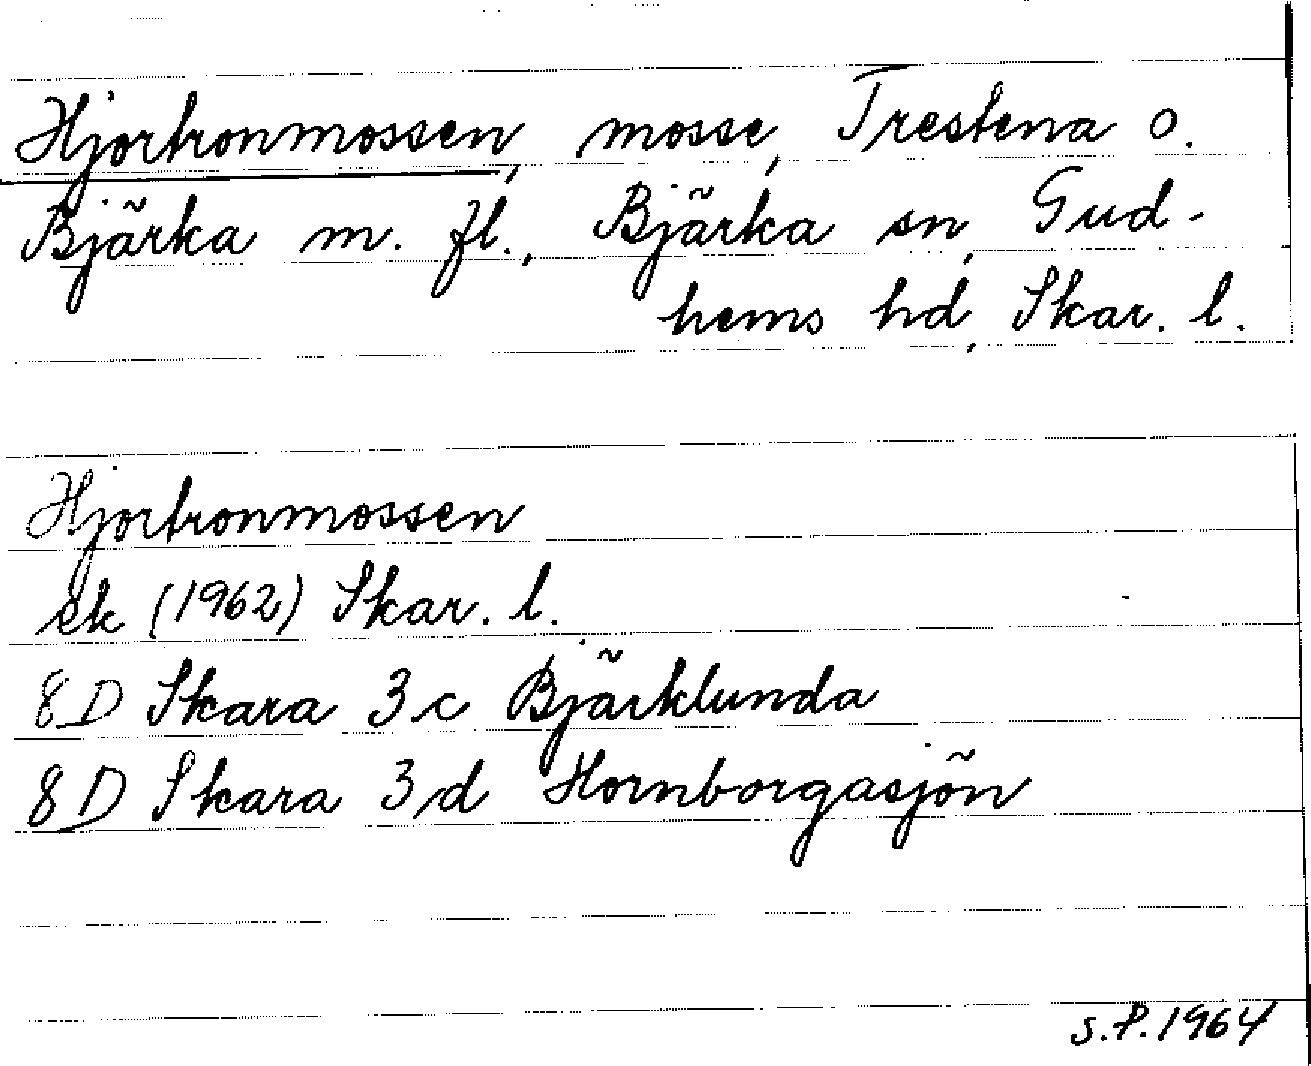 Hjortronmossen, mosse, Trestena o.
Bjärka m. fl., Bjärka sn, Gud-
hems hd, Skar. l.
Hjortronmossen
ek (1962) Skar. l.
8D Skara 3c Bjärklunda
8D Skara 3d Hornborgasjön
S.P. 1964